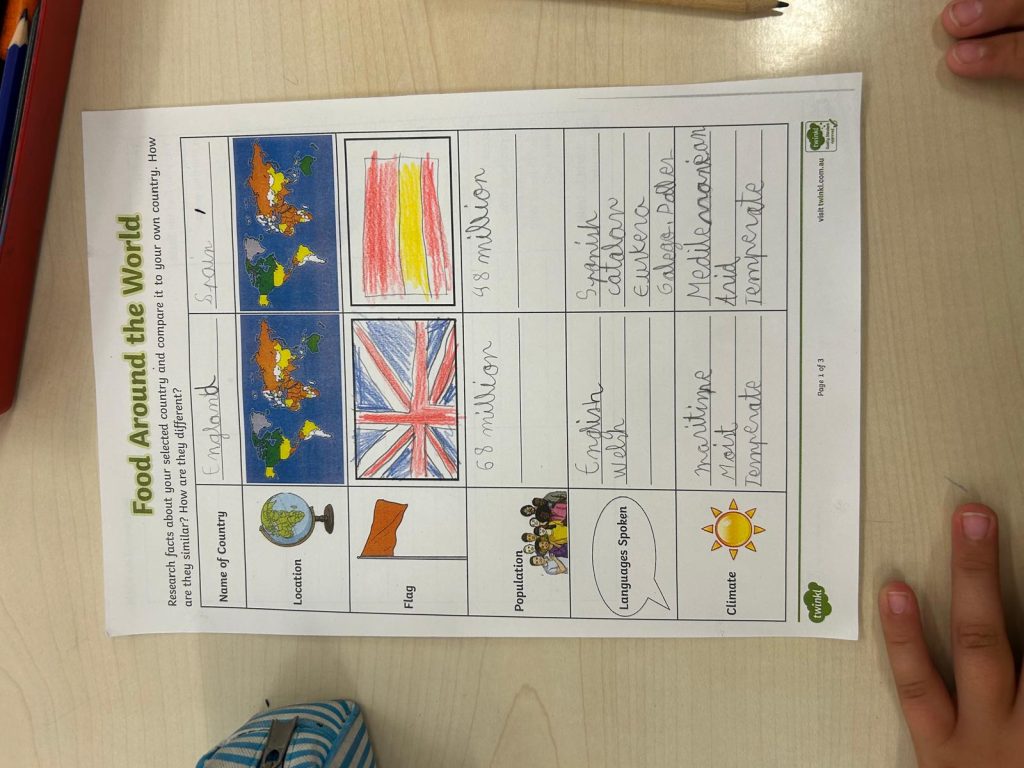 Food Around the World
Research facts about your selected country and compare it to your own country. How
are they similar? How are they different?
Name of Country
England
Spain
Location
Flag
Population
68 million
48 million
Languages Spoken
English
Welsh
Spanish
catalan
Euskera
Galego,
Climate
maritime
Moist
Temperate
Arid
Temperate
twinkl
Page 1 of 3
visit twinkl.com.au
twinkl